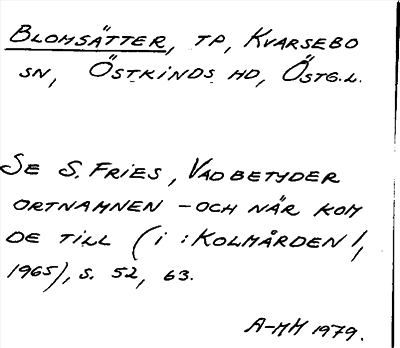 BLOMSÄTTER, TP, KVARSEBO
SN, ÖSTKINDS HD, ÖSTG.L.
SE S. FRIES, VAD BETYDER
ORTNAMNEN - OCH NÄR KOM
DE TILL (i : KOLMÅRDEN 1,
1965), S. 52, 63.
A-MM 1979.